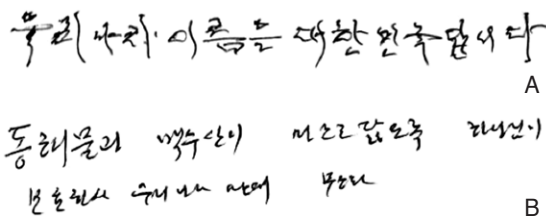 우리나라 이름은 대한민국입니다
A
동해물과 백두산이 마르고 닳도록
보호하사 우리나라 만세
B